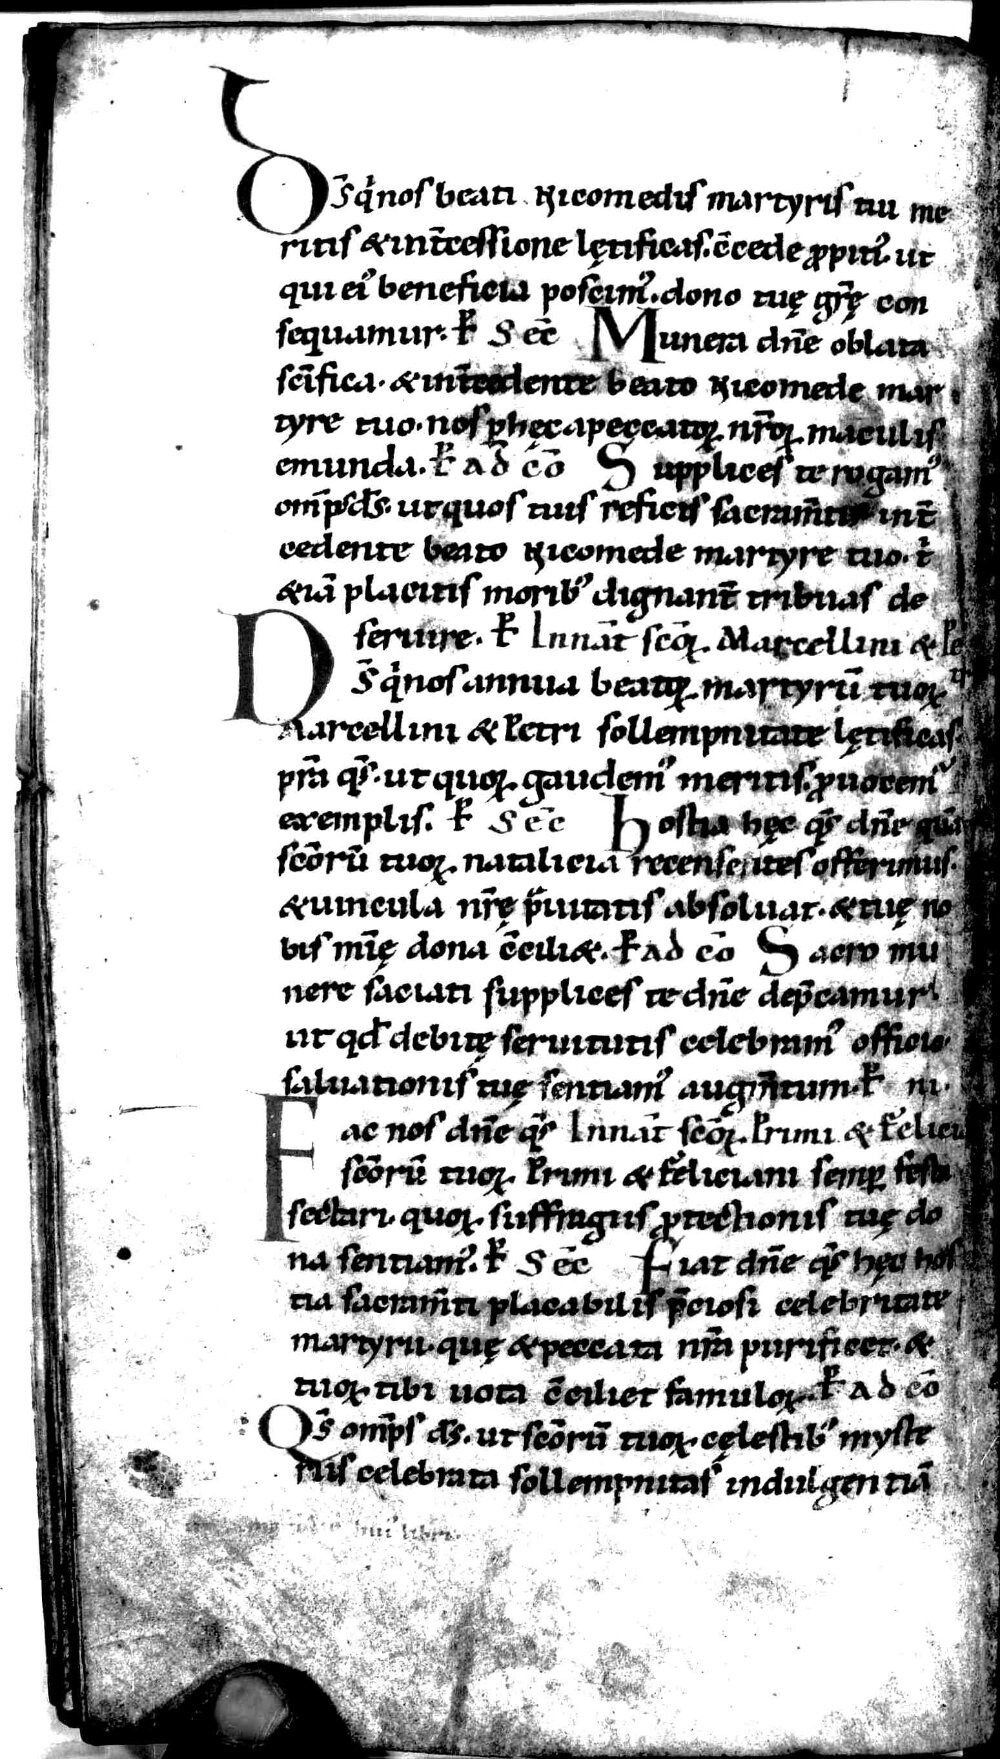 D̅s q̇ nos beati Nicomedis martyris tui me
ritis & int̅cessione lętificas. c̅cede ꝓpitiꝰ. ut
qui eiꝰ beneficia poscimꝰ. dono tuę gr̅ę con
sequamur. ꝶ Sec̅ Munera dn̅e oblata
sc̅ifica. & int̅cedente beato Nicomede mar
tyre tuo. nos ꝑ hęc a peccatoꝝ nr̅oꝝ maculis
emunda. ꝶ ad co̅ Supplices te rogamꝰ
omp̅s ds̅. ut quos tuis reficis sacram̅tis int̅
cedente beato Nicomede martyre tuo. t̊
&ia̅ placitis moribꝰ dignant̅ tribuas de
seruire. ꝶ In nat̅ sco̅ꝝ. Marcellini & Pe
tri
D̅s q̇ nos annua beatoꝝ martyru̅ tuoꝝ
Marcellini & Petri sollempnitate lętificas.
pr̅a qs̅. ut quoꝝ gaudemꝰ meritis. ꝓuocemꝰ
exemplis. ꝶ Sec̅ hostia hęc qs̅ dn̅e qua̅
sco̅ru̅ tuoꝝ natalicia recensentes offerimus.
& uincula nr̅ę p̅uitatis absoluat. & tuę no
bis mi̅ę dona c̅cili&. ꝶ ad co̅ Sacro mu
nere saciati supplices te dn̅e dep̅camur
ut qd̅ debitę seruitutis celebramꝰ officio.
saluationis tuę sentiamꝰ augm̅tum. ꝶ
Fac nos dn̅e qs̅ In nat̅ sco̅ꝝ. Primi & Felici
sco̅ru̅ tuoꝝ. Primi & Feliciani semꝑ festa
sectari. quoꝝ suffragiis ꝓtectionis tuę do
na sentiamꝰ. ꝶ Sec̅ Fiat dn̅e qs̅ hęc hos
tia sacram̅ti placabilis p̅ciosi celebritate
martyru. quę & peccata nr̅a purificet. &
tuoꝝ tibi uota c̅ciliet famuloꝝ. ꝶ ad co̅
Qs̅ omp̅s ds̅. ut sco̅ru̅ tuoꝝ cęlestibꝰ myste
riis celebrata sollempnitas indulgentia̅
huiꝰ libri